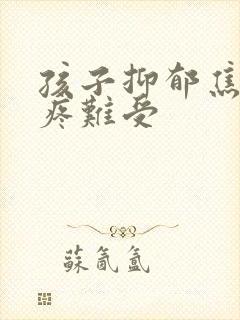 孩子抑郁焦
疼難受
蘇氤氳